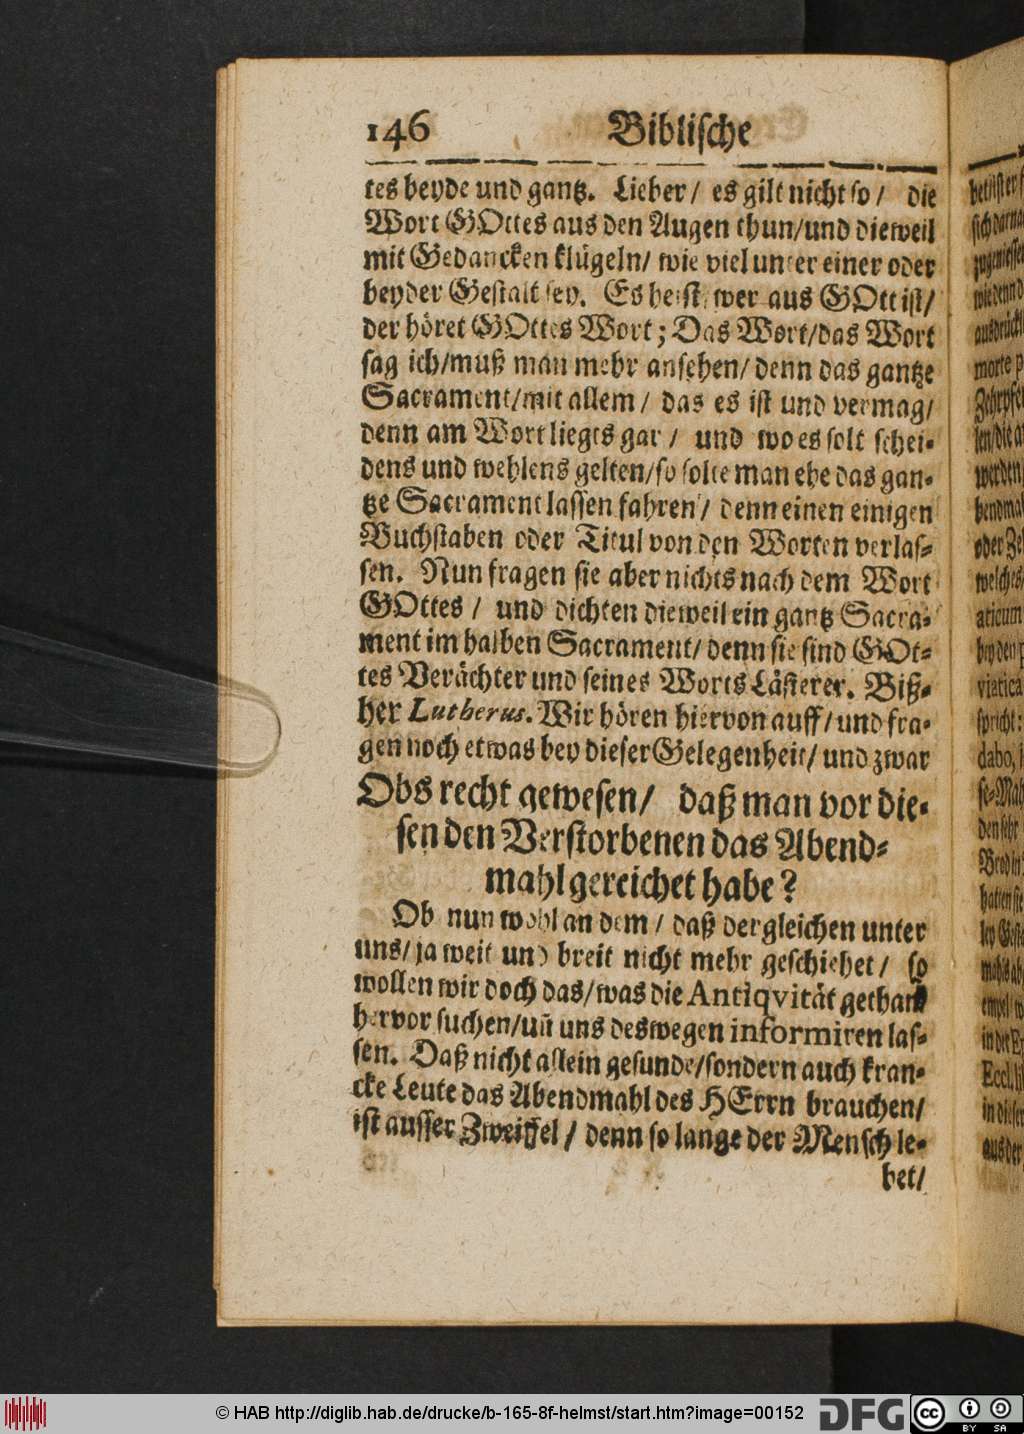 146 Biblische
tes beyde und gantz. Lieber/ es gilt nicht so/ die
Wort GOttes aus den Augen thun/und dieweil
mit Gedancken klügeln/ wie viel unter einer oder
beyder Gestalt sey. Es heist, wer aus GOtt ist/
der höret GOttes Wort; Das Wort/das Wort
sag ich/muß man mehr ansehen/ denn das gantze
Sacrament/mit allem/ das es ist und vermag/
denn am Wort liegts gar/ und wo es solt schei-
dens und wehlens gelten/so solte man ehe das gan-
tze Sacrament lassen fahren/ denn einen einigen
Buchstaben oder Titul von den Worten verlas-
sen. Nun fragen sie aber nichts nach dem Wort
GOttes/ und dichten dieweil ein gantz Sacra-
ment im halben Sacrament/ denn sie sind GOt-
tes Verächter und seines Worts Lästerer. Biß-
her Lutherus. Wir hören hiervon auff/und fra-
gen noch etwas bey dieser Gelegenheit/ und zwar
Obs recht gewesen/ daß man vor die-
sen den Verstorbenen das Abend-
mahl gereichet habe?
Ob nun wohl an dem/ daß dergleichen unter
uns/ja weit und breit nicht mehr geschiehet/ so
wollen wir doch das/was die Antiqvität gethan
hervor suchen/uñ uns deswegen informiren las-
sen. Daß nicht allein gesunde/sondern auch kran-
cke Leute das Abendmahl des HErrn brauchen/
ist ausser Zweiffel/ denn so lange der Mensch le-
bet/
© HAB http://diglib.hab.de/drucke/b-165-8f-helmst/start.htm?image=00152
DFG
cc BY SA